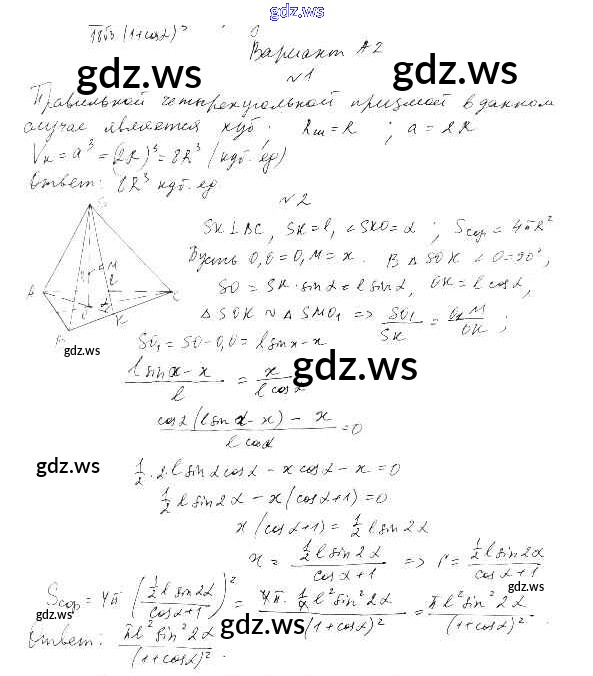 gdz.ws
18√3 (1+cosα)³
Вариант А2
gdz.ws
gdz.ws
№1
Правильной четырехугольной призмой в данном
случае является куб. Rш = R ; a = 2R
Vк = a³ = (2R)³ = 8R³ (куб. ед)
Ответ: 8R³ куб. ед
№2
SK⊥BC, SK = l, ∠SKO = α ; Sсфер = 4πR²
Пусть O₁O = O₁M = x. В △SOK ∠O = 90°,
SO = SK · sinα = l sinα, OK = l cosα,
△SOK ∾ △SMO₁ => SO₁/SK = O₁M/OK ;
SO₁ = SO − O₁O = l sinα − x
gdz.ws
gdz.ws
(l sinα − x)/l = x/(l cosα)
(cosα(l sinα − x) − x)/(l cosα) = 0
gdz.ws
gdz.ws
½ · 2 l sinα cosα − x cosα − x = 0
½ l sin2α − x(cosα+1) = 0
x(cosα+1) = ½ l sin2α
x = (½ l sin2α)/(cosα+1) => r = (½ l sin2α)/(cosα+1)
gdz.ws
Sсфер = 4π ((½ l sin2α)/(cosα+1))² = (4π · ¼ l² sin²2α)/(1+cosα)² = (πl² sin²2α)/(1+cosα)² .
gdz.ws
gdz.ws
gdz.ws
Ответ: (πl² sin²2α)/(1+cosα)² .